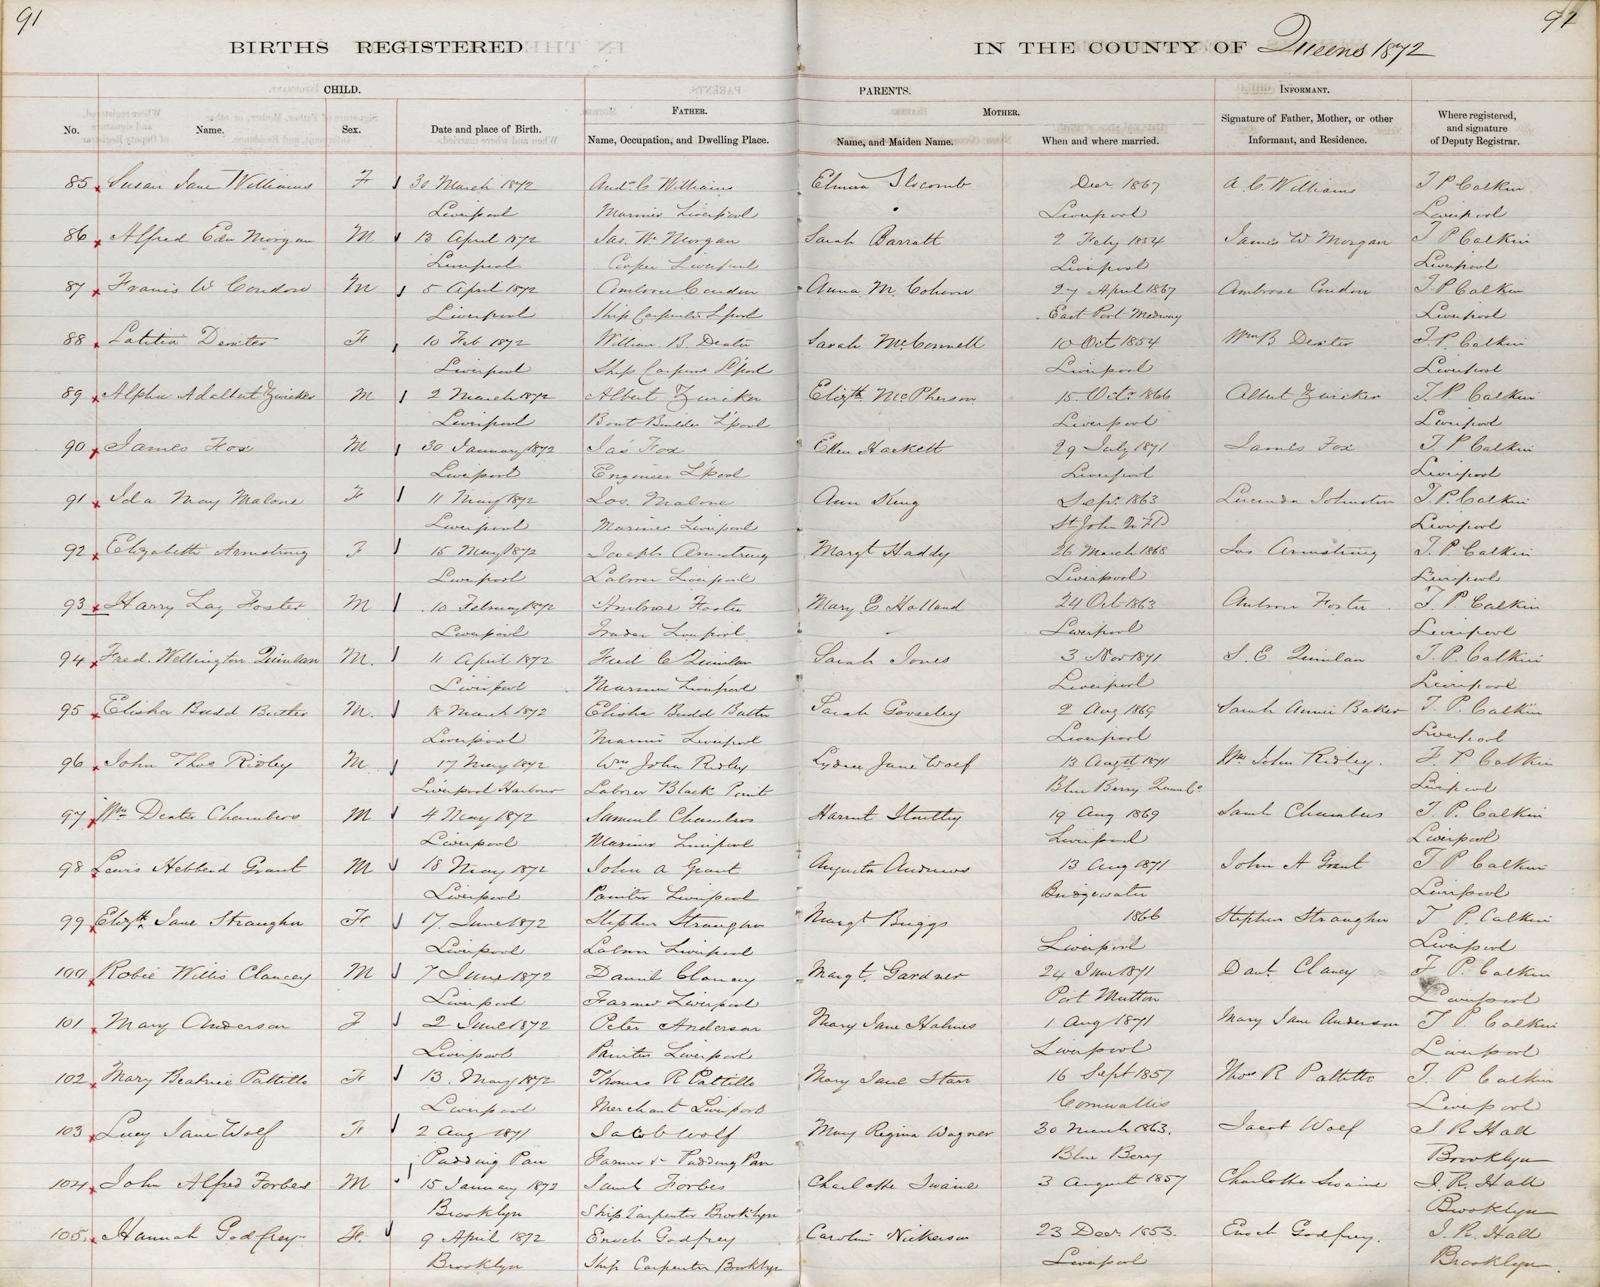 91
92
BIRTHS REGISTERED IN THE COUNTY OF Queens 1872
CHILD.
PARENTS.
INFORMANT.
FATHER.
MOTHER.
No. Name. Sex. Date and place of Birth. Name, Occupation, and Dwelling Place. Name, and Maiden Name. When and where married. Signature of Father, Mother, or other Informant, and Residence. Where registered, and signature of Deputy Registrar.
85 Susan Jane Williams F 30 March 1872 And. C Williams Elmira Slocomb Decr 1867 A. C. Williams T P Calkin
Liverpool Mariner Liverpool Liverpool Liverpool
86 Alfred Edw Morgan M 13 April 1872 Jas. W. Morgan Sarah Barratt 2 Feby 1854 James W Morgan T P Calkin
Liverpool Cooper Liverpool Liverpool Liverpool
87 Francis W Condon M 5 April 1872 Ambrose Condon Anna M. Cohoon 27 April 1867 Ambrose Condon T. P Calkin
Liverpool Ship Carpenter L'pool East Port Medway Liverpool
88 Latitia Dexter F 10 Feb 1872 William B. Dexter Sarah McConnell 10 Oct 1854 Wm B Dexter T. P. Calkin
Liverpool Ship Carpenter L'pool Liverpool Liverpool
89 Alpha Adelbert Zwicker M 2 March 1872 Albert Zwicker Elizth McPherson 15 Octr 1866 Albert Zwicker T. P. Calkin
Liverpool Boat Builder L'pool Liverpool Liverpool
90 James Fox M 30 January 1872 Jas Fox Ellen Hackett 29 July 1871 James Fox T P Calkin
Liverpool Engineer L'pool Liverpool Liverpool
91 Ida May Malone F 11 May 1872 Jos. Malone Ann King Sepr. 1863 Lucinda Johnston T. P. Calkin
Liverpool Mariner Liverpool St John N Fd Liverpool
92 Elizabeth Armstrong F 15 May 1872 Joseph Armstrong Margt Haddy 26 March 1868 Jos Armstrong T. P. Calkin
Liverpool Laborer Liverpool Liverpool Liverpool
93 Harry Lay Foster M 10 February 1872 Ambrose Foster Mary E Holland 24 Oct 1863 Ambrose Foster T. P. Calkin
Liverpool Trader Liverpool Liverpool Liverpool
94 Fred. Wellington Quinlan M. 11 April 1872 Fred C Quinlan Sarah Jones 3 Nov 1871 S. E. Quinlan T. P. Calkin
Liverpool Mariner Liverpool Liverpool Liverpool
95 Elisha Budd Butler M. 18 March 1872 Elisha Budd Butler Sarah Gouseley 2 Aug 1869 Sarah Annie Baker T. P. Calkin
Liverpool Mariner Liverpool Liverpool Liverpool
96 John Thos Ridley M 17 May 1872 Wm John Ridley Lydia Jane Wolf 13 Augt 1871 Wm John Ridley. T. P Calkin
Liverpool Harbour Laborer Black Point Blue Berry Queens Co Liverpool
97 Wm Dexter Chambers M 4 May 1872 Samuel Chambers Harriet 19 Aug 1869 Saml Chambers T. P. Calkin
Liverpool Mariner Liverpool Liverpool Liverpool
98 Lewis Hebberd Grant M 18 May 1872 John A Grant Augusta Andrews 13 Aug 1871 John A Grant T P Calkin
Liverpool Painter Liverpool Bridgewater Liverpool
99 Elizth Jane Straughn F. 17. June 1872 Stephen Straughn Margt Briggs 1866 Stephen Straughn T P. Calkin
Liverpool Labor Liverpool Liverpool Liverpool
100 Robie Willis Clancey M 7 June 1872 Daniel Clancy Margt. Gardner 24 June 1871 Danl. Clancy T P. Calkin
Liverpool Farmer Liverpool Port Mutton Liverpool
101 Mary Anderson F 2 June 1872 Peter Anderson Mary Jane Holmes 1 Aug 1871 Mary Jane Anderson T P. Calkin
Liverpool Painter Liverpool Liverpool Liverpool
102 Mary Beatrice Pattillo F. 13. May 1872 Thomas R Pattillo Mary Jane Starr 16 Sept 1857 Thos R Pattillo T. P Calkin
Liverpool Merchant Liverpool Cornwallis Liverpool
103 Lucy Jane Wolf F 2 Aug 1871 Jacob Wolf Mary Regina Wagner 30 March 1863. Jacob Wolf J R Hall
Pudding Pan Farmer &c Pudding Pan Blue Berry Brooklyn
104 John Alfred Forbes M 15 January 1872 Saml Forbes Charlotte Swaine 3 August 1857 Charlotte Swaine J. R. Hall
Brooklyn Ship Carpenter Brooklyn Brooklyn
105. Hannah Godfrey F. 9 April 1872 Enoch Godfrey Caroline Nickerson 23 Decr 1853. Enoch Godfrey. J. R. Hall
Brooklyn Ship Carpenter Brooklyn Liverpool Brooklyn.